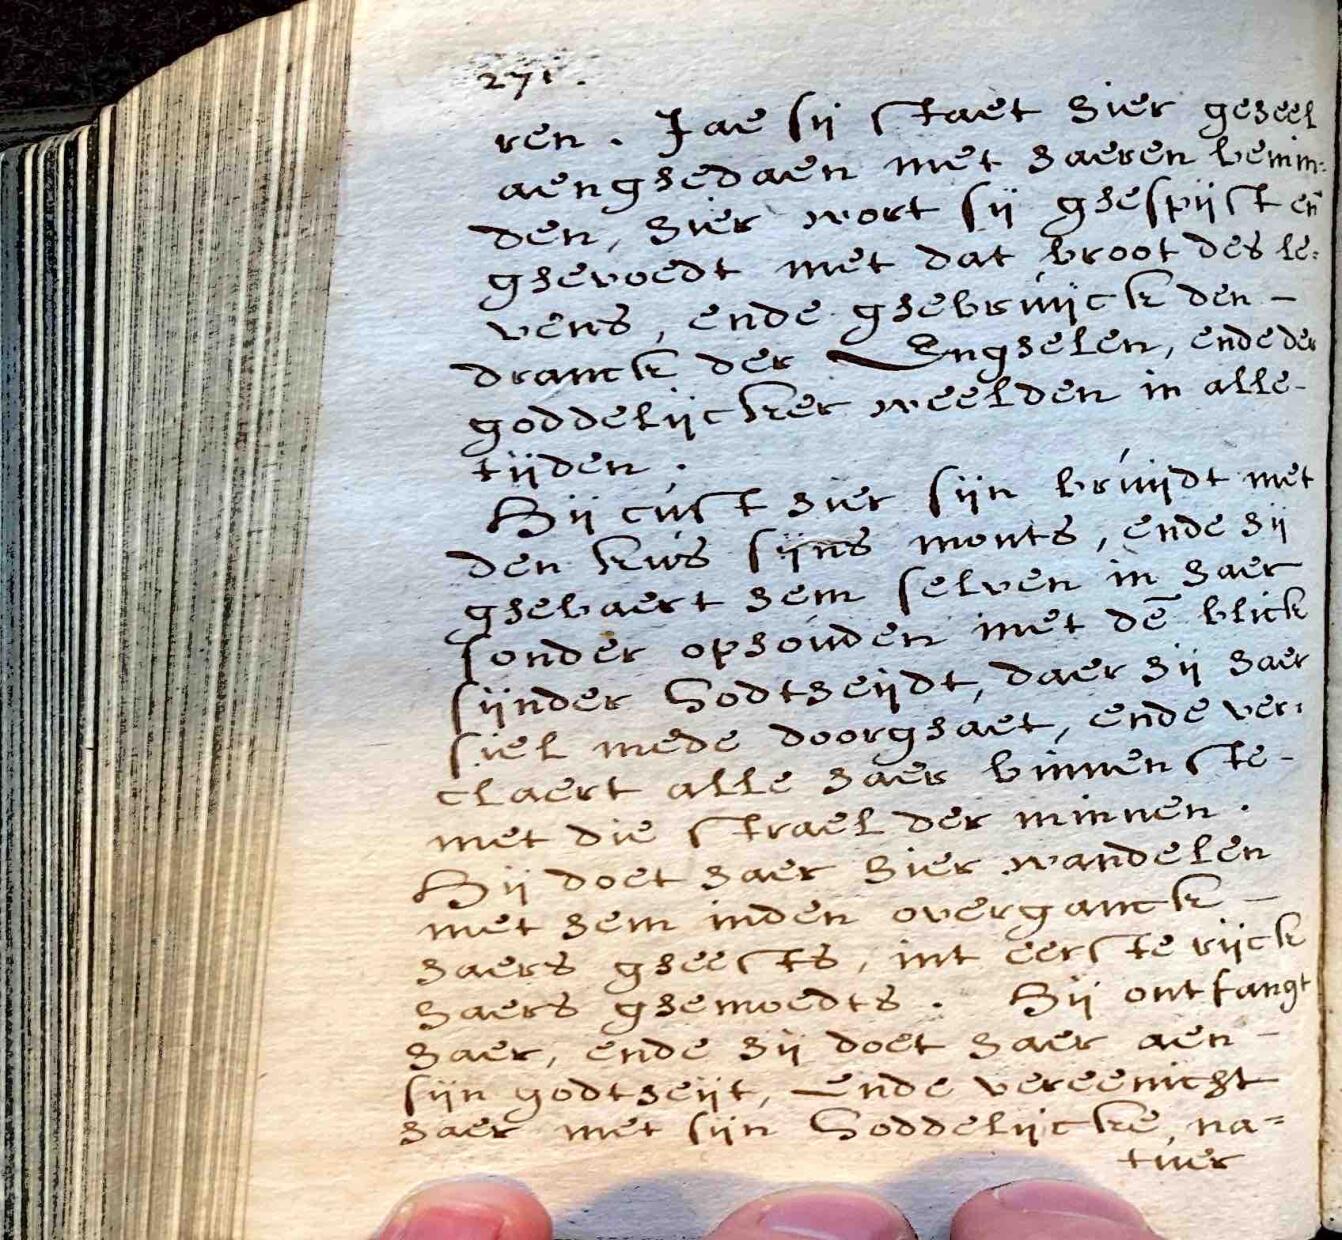 271.
ren. Jae sij staet hier geheel
aenghedaen met haeren bemin:
den, hier wort sij ghespijst en̄
ghevoedt met dat broot des le:
vens, ende ghebruijck den -
dranck der Enghelen, ende der
goddelijcker weelden in alle-
tijden.
Hij cust hier sijn bruijdt met
den kus sijns monts, ende hij
ghebaert hem selven in haer
sonder ophouden met dē blick
sijnder Godtheijdt, daer hij haer
siel mede doorghaet, ende ver:
claert alle haer binnenste -
met die strael der minnen.
Hij doet haer hier wandelen
met hem inden overganck -
haers gheests, int eerste rijck
haers ghemoedts. Hij ontfangt
haer, ende hij doet haer aen -
sijn godtheijt, Ende vereenicht
haer met sijn Goddelijcke, na=
tuer